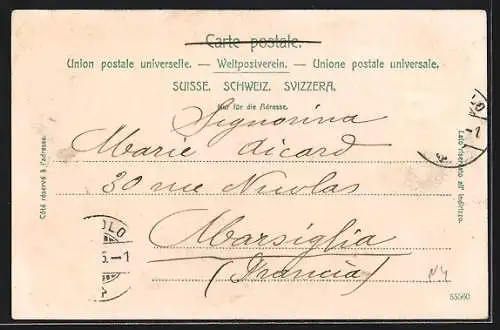 Carte postale.
Union postale universelle. — Weltpostverein. — Unione postale universale.
SUISSE. SCHWEIZ. SVIZZERA.
Nur für die Adresse.
Signorina
Marie Aicard
30 rue Nicolas
Marsiglia
(Francia)
Côté réservé à l'adresse.
Lato riservato all' indirizzo.
OLO
—1
55560